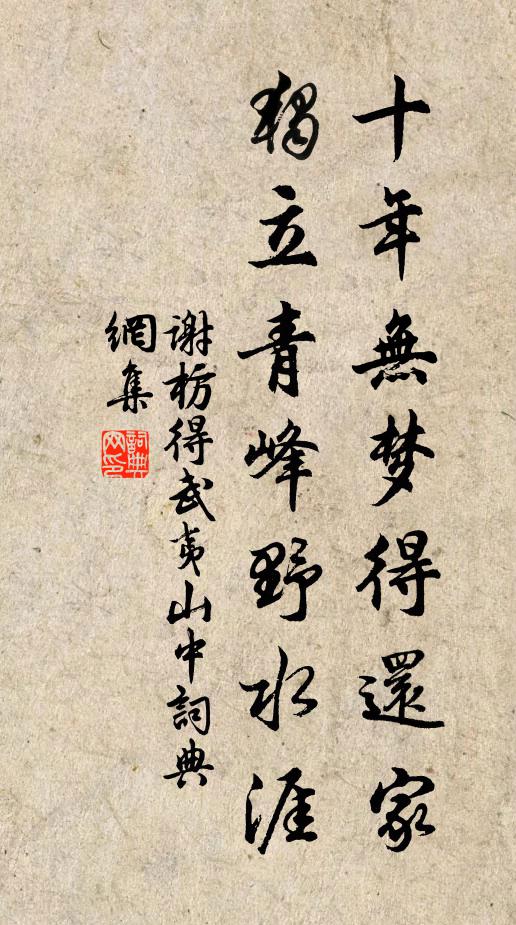 十年無梦得還家
獨立青峰野水涯
謝枋得武夷山中詞典
網集
詞典网印